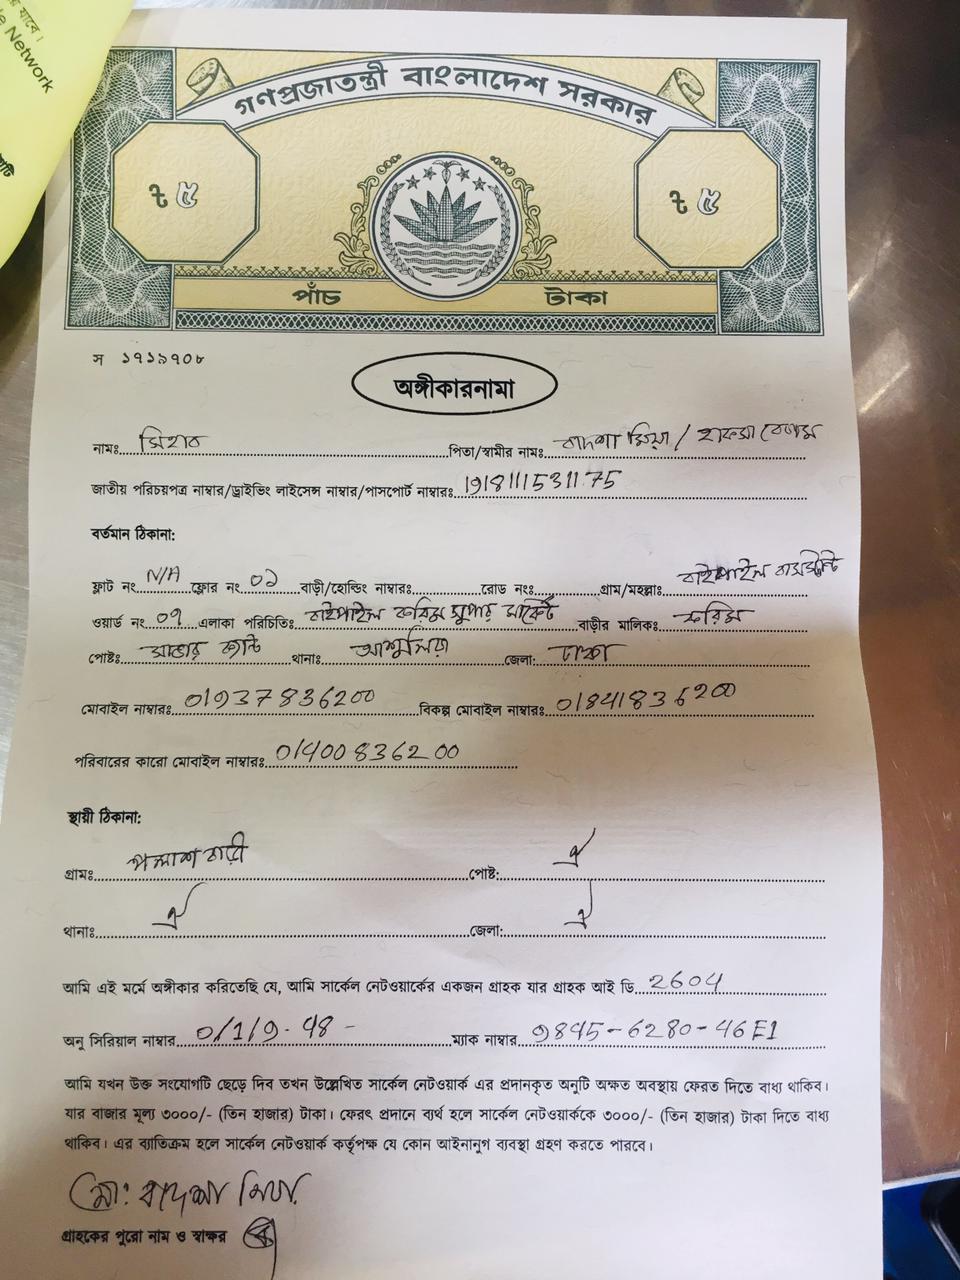 le Network
গণপ্রজাতন্ত্রী বাংলাদেশ সরকার
৳ ৫ ৳ ৫
পাঁচ টাকা
স ১৭১৯৭০৮
অঙ্গীকারনামা
নামঃ সিহাব পিতা/স্বামীর নামঃ বাদশা মিয়া / হাফসা বেগম
জাতীয় পরিচয়পত্র নাম্বার/ড্রাইভিং লাইসেন্স নাম্বার/পাসপোর্ট নাম্বারঃ 1918111531175
বর্তমান ঠিকানা:
ফ্লাট নং N/A ফ্লোর নং ০১ বাড়ী/হোল্ডিং নাম্বারঃ রোড নংঃ গ্রাম/মহল্লাঃ বাইপাইল বাসস্ট্যান্ড
ওয়ার্ড নং ০৭ এলাকা পরিচিতিঃ বাইপাইল করিম সুপার মার্কেট বাড়ীর মালিকঃ করিম
পোষ্টঃ সাভার ক্যান্ট থানাঃ আশুলিয়া জেলা: ঢাকা
মোবাইল নাম্বারঃ 01937836200 বিকল্প মোবাইল নাম্বারঃ 01841836200
পরিবারের কারো মোবাইল নাম্বারঃ 01400836200
স্থায়ী ঠিকানা:
গ্রামঃ পলাশ বাড়ী পোষ্ট: ঐ
থানাঃ ঐ জেলা: ঐ
আমি এই মর্মে অঙ্গীকার করিতেছি যে, আমি সার্কেল নেটওয়ার্কের একজন গ্রাহক যার গ্রাহক আই ডি 2604
অনু সিরিয়াল নাম্বার 0/1/9-48 - ম্যাক নাম্বার 9845-6280-46E1
আমি যখন উক্ত সংযোগটি ছেড়ে দিব তখন উল্লেখিত সার্কেল নেটওয়ার্ক এর প্রদানকৃত অনুটি অক্ষত অবস্থায় ফেরত দিতে বাধ্য থাকিব।
যার বাজার মূল্য ৩০০০/- (তিন হাজার) টাকা। ফেরৎ প্রদানে ব্যর্থ হলে সার্কেল নেটওয়ার্ককে ৩০০০/- (তিন হাজার) টাকা দিতে বাধ্য
থাকিব। এর ব্যাতিক্রম হলে সার্কেল নেটওয়ার্ক কর্তৃপক্ষ যে কোন আইনানুগ ব্যবস্থা গ্রহণ করতে পারবে।
মো: বাদশা মিয়া
গ্রাহকের পুরো নাম ও স্বাক্ষর